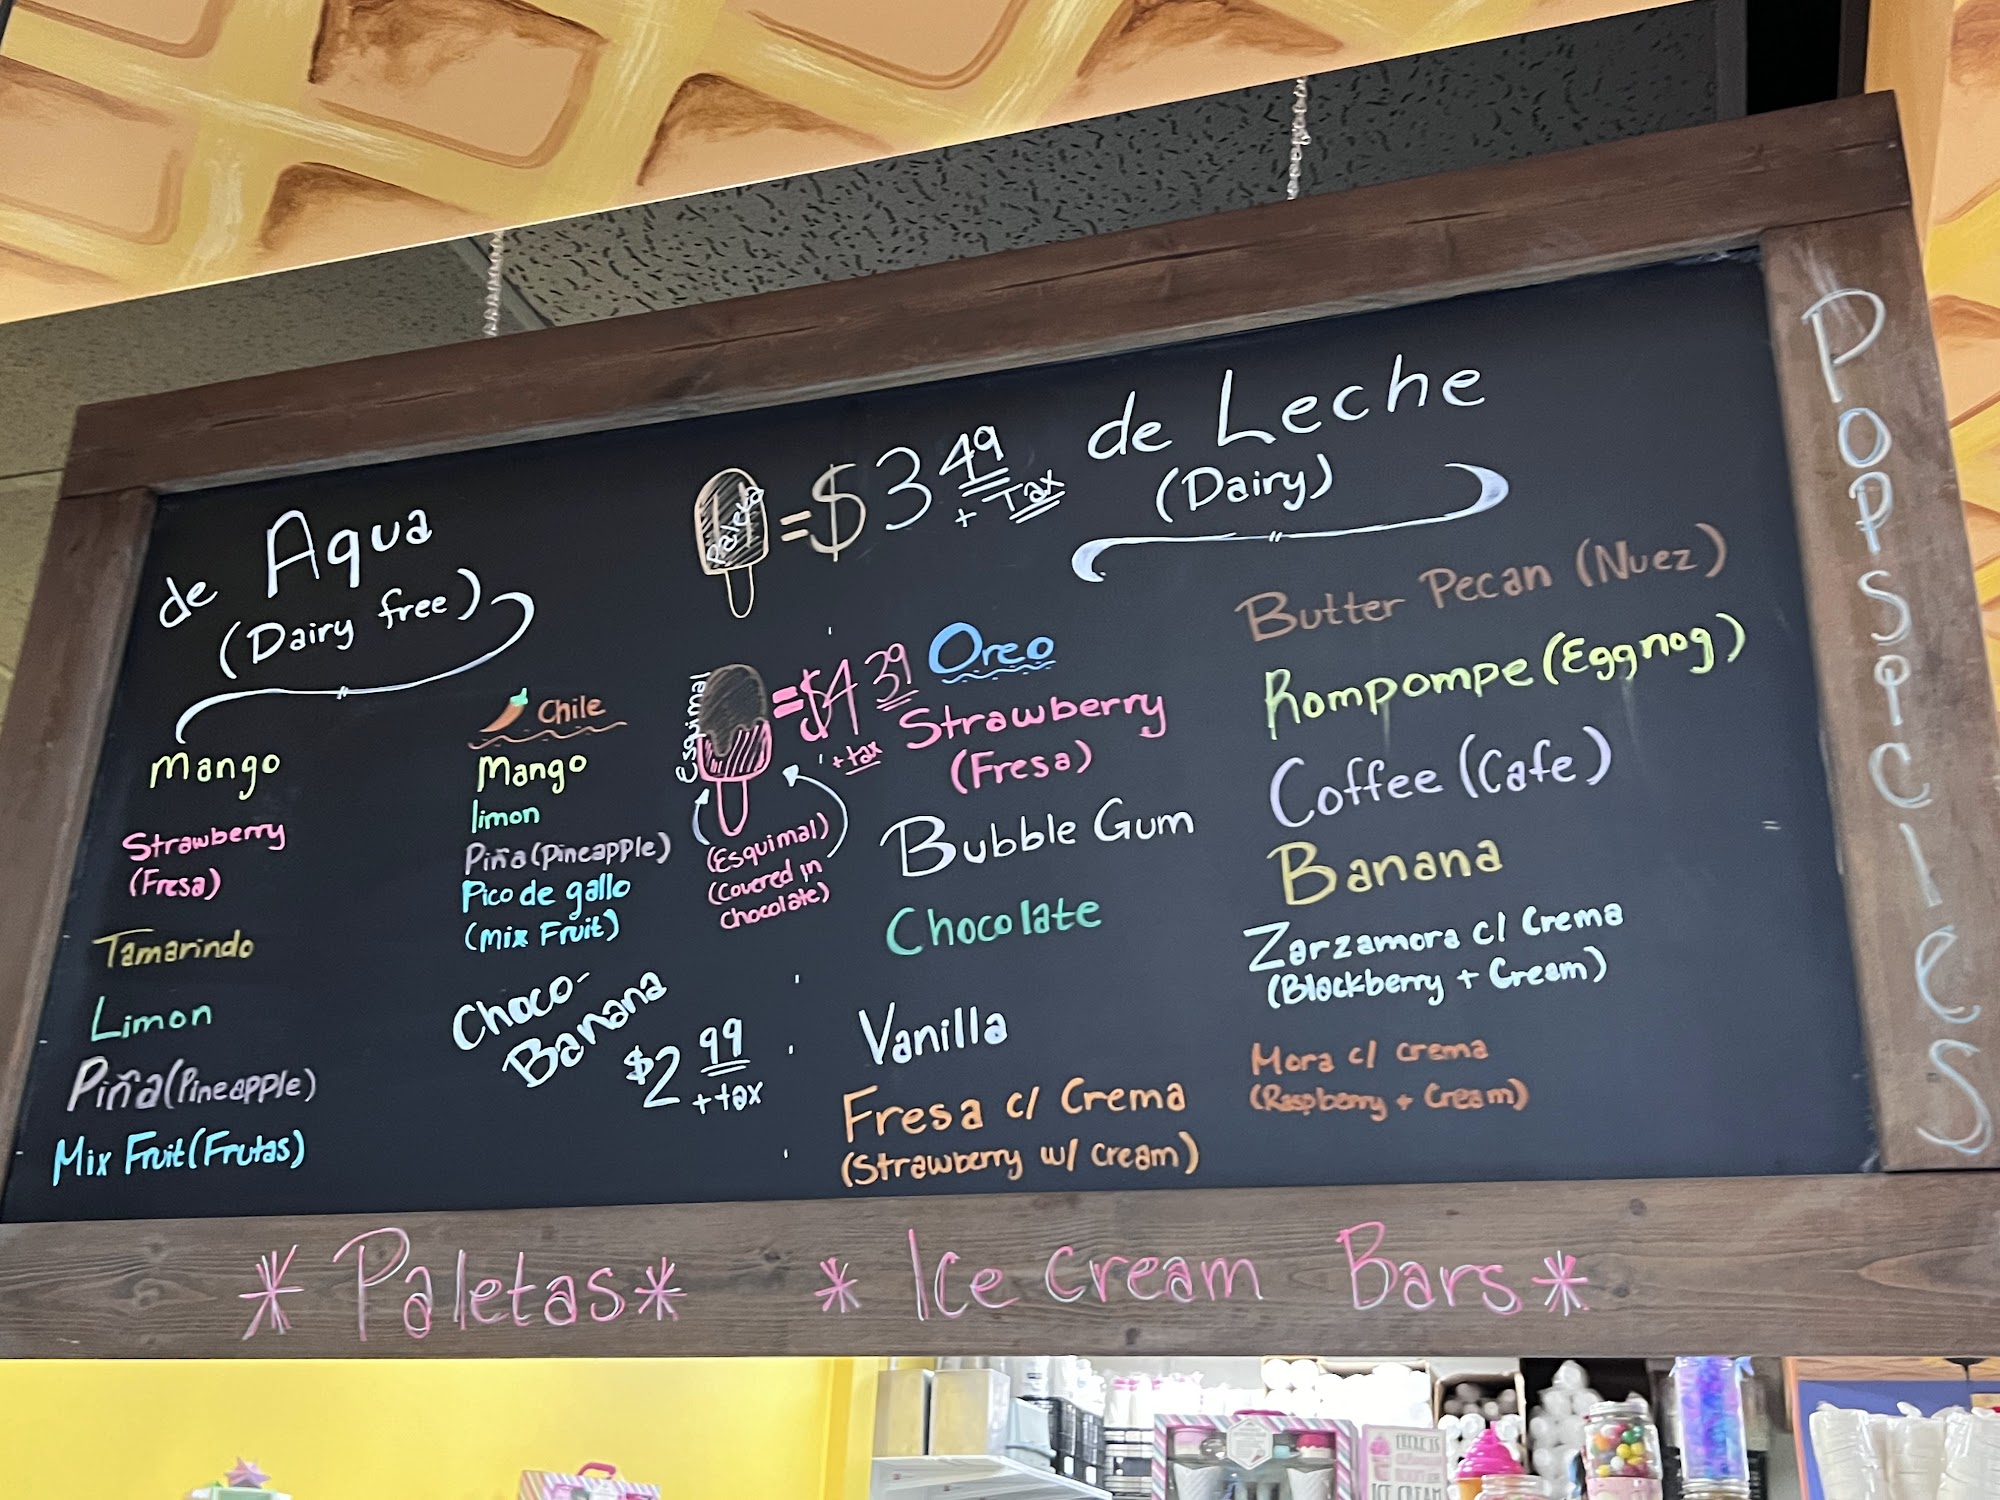 de Aqua
(Dairy free)
Mango
Strawberry
(Fresa)
Tamarindo
Limon
Piña (Pineapple)
Mix Fruit (Frutas)
Chile
Mango
limon
Piña (Pineapple)
Pico de gallo
(Mix Fruit)
Choco-
Banana
$2 99
+ tax
Paleta
= $3 49
+ Tax
Esquimal
= $4 39
+ tax
(Esquimal)
(Covered in
Chocolate)
de Leche
(Dairy)
Oreo
Strawberry
(Fresa)
Bubble Gum
Chocolate
Vanilla
Fresa c/ Crema
(Strawberry w/ cream)
Butter Pecan (Nuez)
Rompompe (Eggnog)
Coffee (Cafe)
Banana
Zarzamora c/ Crema
(Blackberry + Cream)
Mora c/ crema
(Raspberry + Cream)
PoPSicleS
* Paletas * * Ice Cream Bars *
ICE CREAM